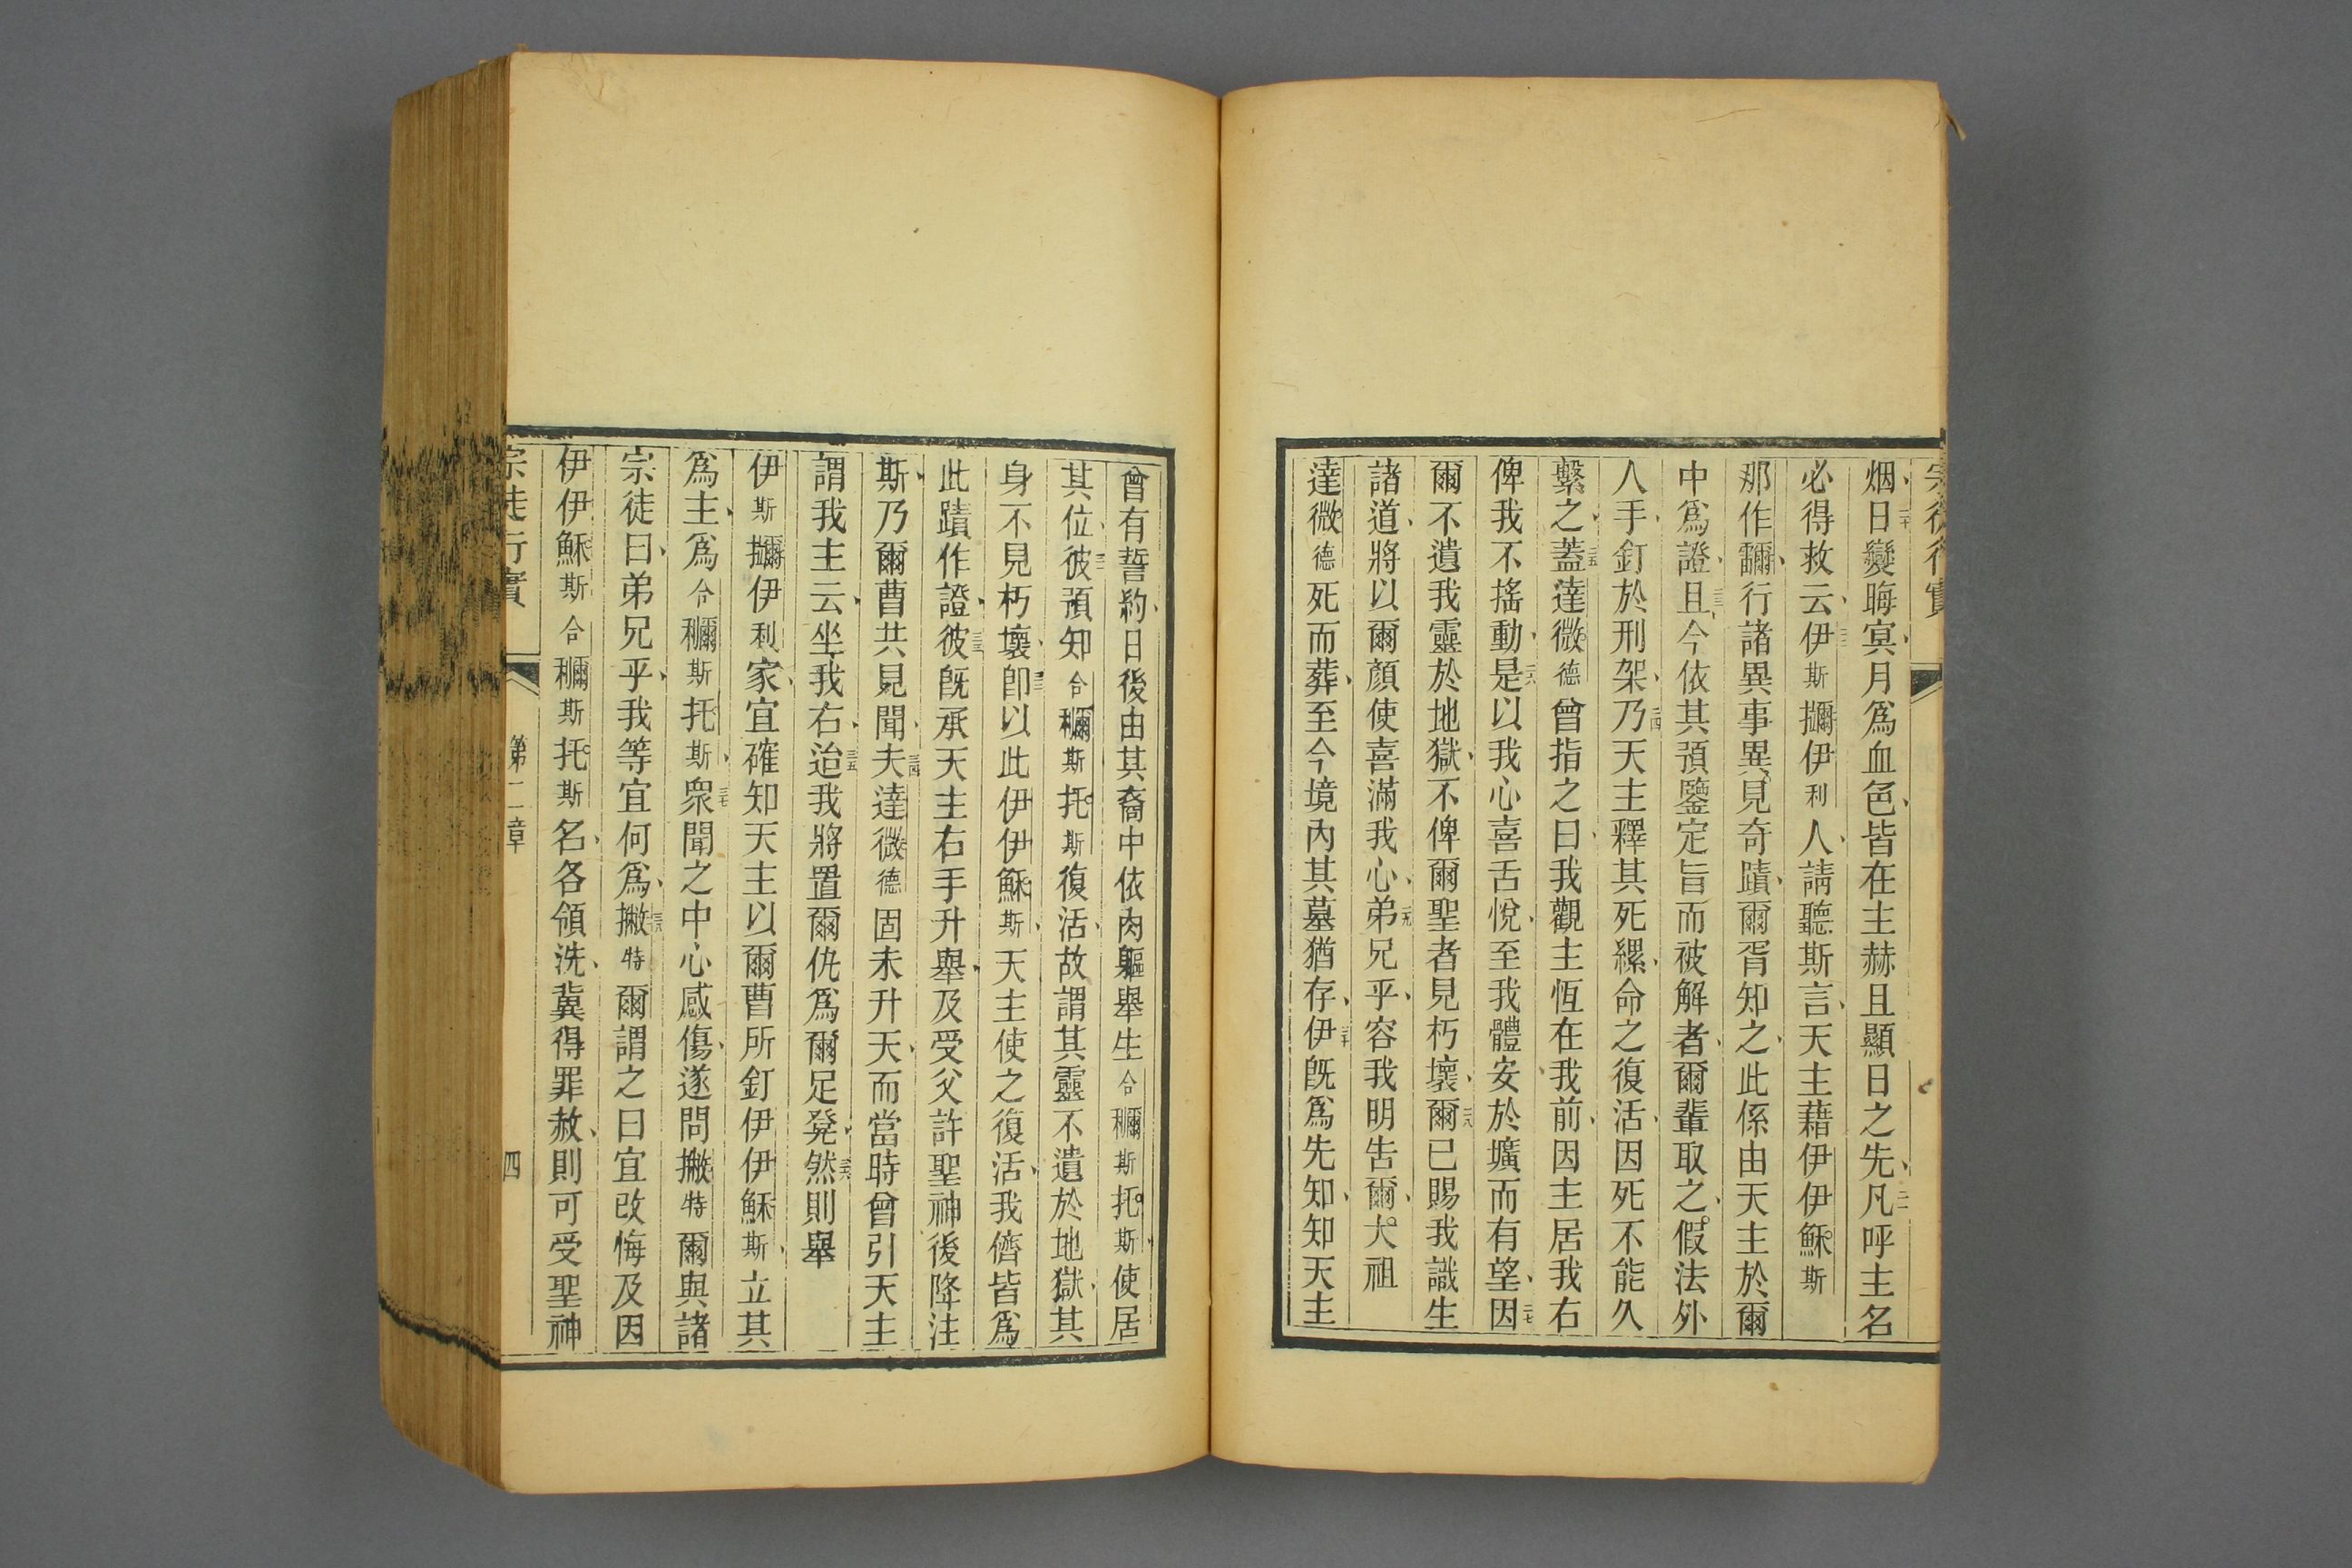 宗徒行實
烟日變晦冥月爲血色皆在主赫且顯日之先二一凡呼主名
必得救云二二伊斯擟伊利人請聽斯言天主藉伊伊穌斯
那作𤅀行諸異事異見奇蹟爾胥知之此係由天主於爾
中爲證二三且今依其預鑒定旨而被解者爾輩取之假法外
人手釘於刑架二四乃天主釋其死縲命之復活因死不能久
繫之二五蓋達微德曾指之曰我觀主恆在我前因主居我右
俾我不搖動二六是以我心喜舌悅至我體安於壙而有望二七因
爾不遺我靈於地獄不俾爾聖者見朽壞二八爾已賜我識生
諸道將以爾顏使喜滿我心二九弟兄乎容我明告爾大祖
達微德死而葬至今境內其墓猶存三十伊既爲先知知天主
曾有誓約曰後由其裔中依肉軀舉生合穪斯托斯使居
其位三一彼預知合穪斯托斯復活故謂其靈不遺於地獄其
身不見朽壞三二卽以此伊伊穌斯天主使之復活我儕皆爲
此蹟作證三三彼既承天主右手升舉及受父許聖神後降注
斯乃爾曹共見聞三四夫達微德固未升天而當時曾引天主
謂我主云坐我右三五迨我將置爾仇爲爾足凳三六然則舉
伊斯擟伊利家宜確知天主以爾曹所釘伊伊穌斯立其
爲主爲合穪斯托斯三七衆聞之中心感傷遂問撇特爾與諸
宗徒曰弟兄乎我等宜何爲三八撇特爾謂之曰宜改悔及因
伊伊穌斯合穪斯托斯名各領洗冀得罪赦則可受聖神
宗徒行實 第二章 四